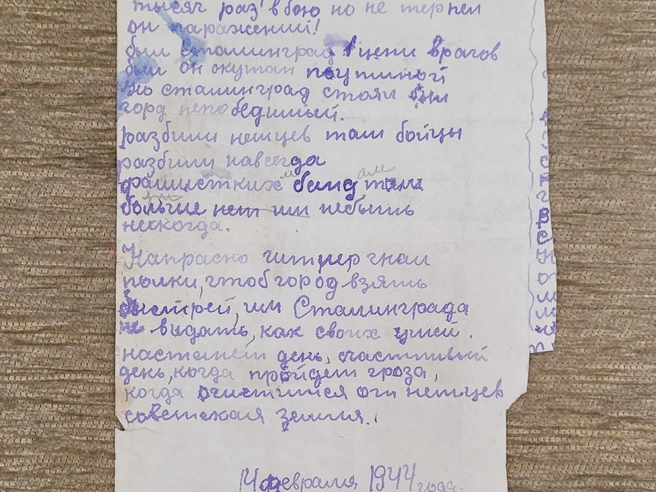 тысяч раз в бою но не терпел
он паражений!
был сталинград в цепи врагов
был он окутан поутиной
но сталинград стоял
горд непобедимый.
разбили немцев там бойцы
разбили навсегда
фашистких банд там
больше нет им небыть
некогда.
Напрасно гитлер гнал
полки, чтоб город взять
быстрей, им Сталинграда
не видать, как своих ушей.
настанет день, счастливый
день, когда пройдет гроза,
когда очистится от немцев
советская земля.
14 февраля 1944 года.